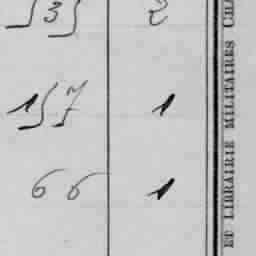 535 2
157 1
66 1
ET LIBRAIRIE MILITAIRES